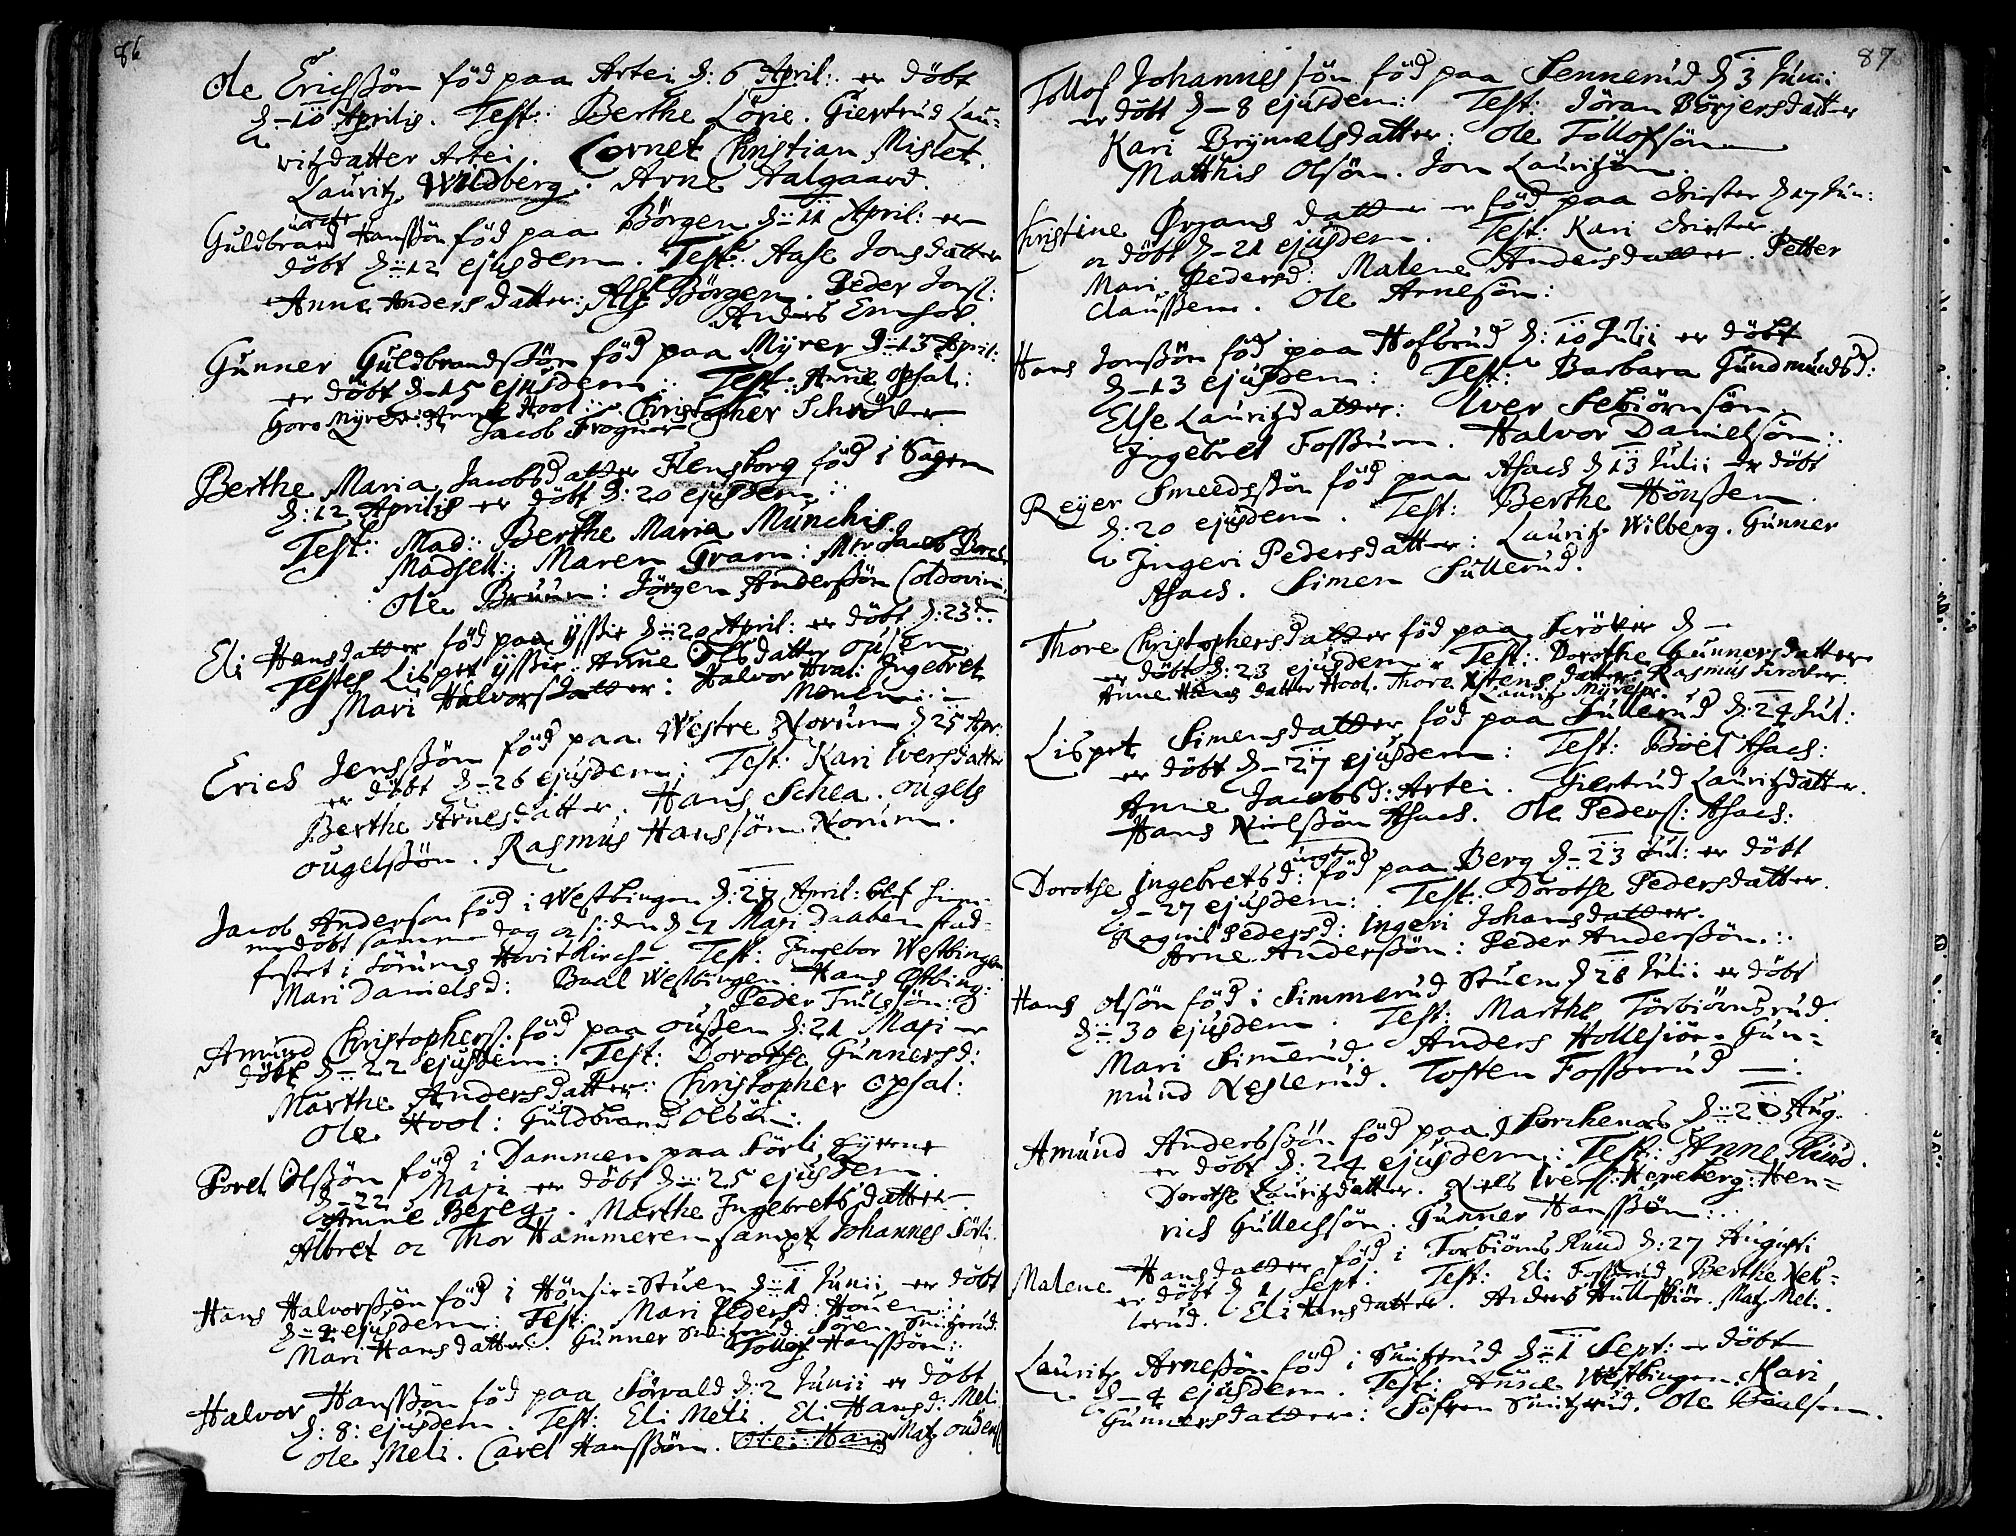 86
Ole Erichssön föd paa Artei d: 6 April: er döbt
d: 10 Aprilis. Test: Berthe Lörie. Giertrud Lau-
ritzdatter Artei. Cornet Christian Mislet.
Lauritz Wildberg. Arne Aalgaard.
uæcte
Guldbrand Hanssön föd paa Börgen d: 11 April: er
döbt d: 12 ejusdem. Test: Aase Jonsdatter
Anne Andersdatter: Alf Börgen. Peder Jons:
Anders
Gunner Guldbrandssön föd paa Myrer d: 13 April:
er döbt d: 15 ejusdem: Test: Anne Opsal:
Goro Myrer: Hool: Christopher Schröder
Jacob Frogner
Berthe Maria Jacobsdatter Flensborg föd i Sagen
d: 12 Aprilis er döbt d: 20 ejusdem:
Test: Mad: Berthe Maria Munchis.
Madsell: Maren Gram: Jacob
Ole Bruun: Jörgen Anderssön Coldevin:
Eli Hansdatter föd paa ÿssie d: 20 April: er döbt d: 23 d:
Testes Lispet ÿssie: Anne Olsdatter ousen
Mari Halvorsdatter: Halvor Hval: Ingebret
Monsen
Erich Jenssön föd paa Westre Norum d: 25 Apr:
er döbt d: 26 ejusdem: Test: Kari Iversdatter
Berthe Arnesdatter: Hans Schea. ougels
ougelssön. Rasmus Hanssön Norum.
Jacob Anderson föd i Westbingen d: 27 April: blef him-
medöbt samme dag oc siden d: 1 Maji daaben stad-
festet i Sörums Hovitkirche. Test: Ingebor Westbingen
Mari Daniels d: Baal Westbingen. Hans Østbing:
Peder Trulssön:
Amund Christophers: föd paa oussen d: 21 Maji er
döbt d: 22 ejusdem: Test: Dorothe Gunnersd:
Marthe Andersdatter: Christopher Opsal:
Ole Hool: Guldbrand Olsön:
Povel Olssön föd i Dammen paa Sörli
d: 22 Maji er döbt d: 25 ejusdem.
Anne Bereg. Marthe Ingebretsdatter
Albret oc Thor Hammeren sampt Johannes Sörli.
Hans Halvorssön föd i Hönsie-Stuen d: 1 Junii er döbt
d: 4 ejusdem: Test: Mari Pedersd: Houen:
Mari Hansdatter. Gunner Smitzrud. Sören Smitzrud.
Tollof Hanssön:
Halvor Hanssön föd paa Sörvald d: 2 Junii er döbt
d: 8: ejusdem. Test: Eli Meli. Eli Hansd: Meli
Ole Meli. Carel Hanssön. Ole Hans Matz oudens
87
Tollof Johannessön föd paa Sennerud d: 3 Junii
er döbt d: 8 ejusdem: Test: Jöran Börjersdatter
Kari Brynnelsdatter: Ole Tollofsön
Matthis Olsön. Jon Lauritzön.
Christine Örjansdatter er föd paa Chister d: 17 Jun:
er döbt d: 21 ejusdem. Test: Kari Chister.
Mari Pedersd: Malene Andersdatter. Petter
Claussen. Ole Arnesön:
Hans Jonssön föd paa Hofbrud d: 10 Julii er döbt
d: 13 ejusdem: Test: Barbara Gundmundsd:
Else Lauritzdatter: Iver Sebiörnsön
Ingebret Fossrum. Halvor Danielsön:
Reyer Smeedssön föd paa Asach d: 13 Julii er döbt
d: 20 ejusdem. Test: Berthe Hönssen
Ingeri Pedersdatter: Lauritz Wilberg. Gunner
Asach. Simen Sullerud.
Thore Christophersdatter föd paa Scröder d: –
er döbt d: 23 ejusdem: Test: Dorothe Gunnersdatter
Anne Hansdatter Hool. Thore datter. Rasmus Scröder.
Lauritz
Lispet Simensdatter föd paa Sullerud d: 24 Jul:
er döbt d: 27 ejusdem: Test: Boel Asach:
Anne Jacobsd: Artei. Giertrud Lauritzdatter.
Hans Nielssön Asach. Ole Peders: Asach:
uægte
Dorothe Ingebretsd: föd paa Berg d: 23 Jul: er döbt
d: 27 ejusdem: Test: Dorothe Pedersdatter.
Ragnil Pedersd: Ingeri Johansdatter.
Arne Anderssön: Peder Anderssön:
Hans Olsön föd i Simmerud Stuen d: 28 Julii er döbt
d: 30 ejusdem. Test: Marthe Törbiörnsrud.
Mari Simerud. Anders Hollesiöe. Gun-
mund Neslerud. Tosten Fossrrud —:
Amund Anderssön föd paa Lerchenes d: 20 Aug.
er döbt d: 24 ejusdem: Test: Anne Rund.
Dorothe Lauritzdatter. Niels Ivers: Hereberg: Hen-
rich Gullechsön. Gunner Hanssön:
Malene Hansdatter föd i Torbiörns Rund d: 27 Augusti
er döbt d: 1 Sept: Test: Eli Fossrud. Berthe Nes-
lerud. Eli Hansdatter. Anders Hullessiöe. Matz Meli.
Lauritz Arnessön föd i Smitzrud d: 1 Sept: er döbt
d: 4 ejusdem. Test: Anne Westbingen. Kari
Gunnersdatter: Söfren Smitzrud. Ole Poulsen.